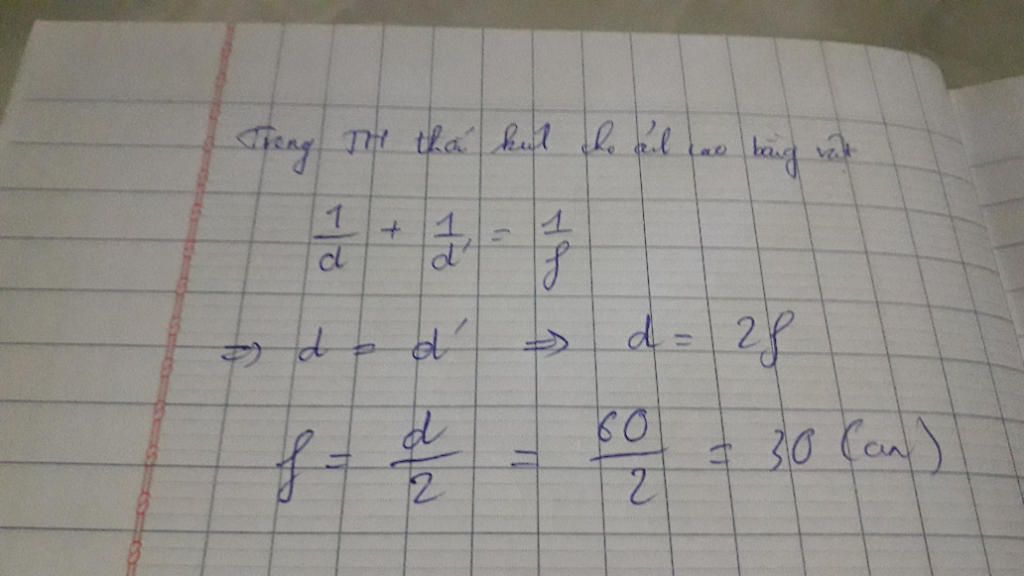 Trong TH thấu kính cho ảnh cao bằng vật
1/d + 1/d' = 1/f
=> d = d' => d = 2f
f = d/2 = 60/2 = 30 (cm)